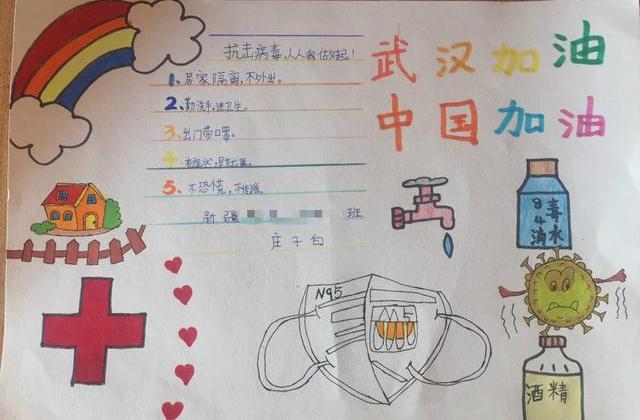 抗击病毒,人人我做起!
1、居家隔离,不外出。
2、勤洗手,讲卫生。
3、出门带口罩。
4、有症状,早就医。
5、不恐慌,不传谣。
新疆 班
庄子白
武汉加油
中国加油
84消毒水
N95
酒精